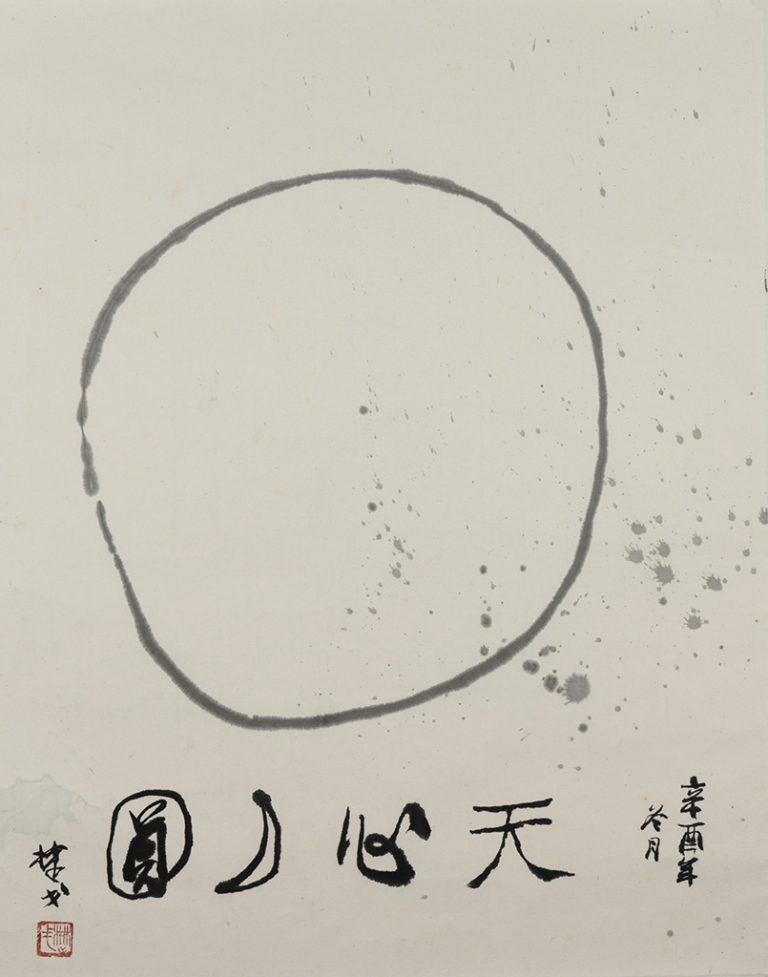 辛酉年
冬月
天心月圓
楚戈